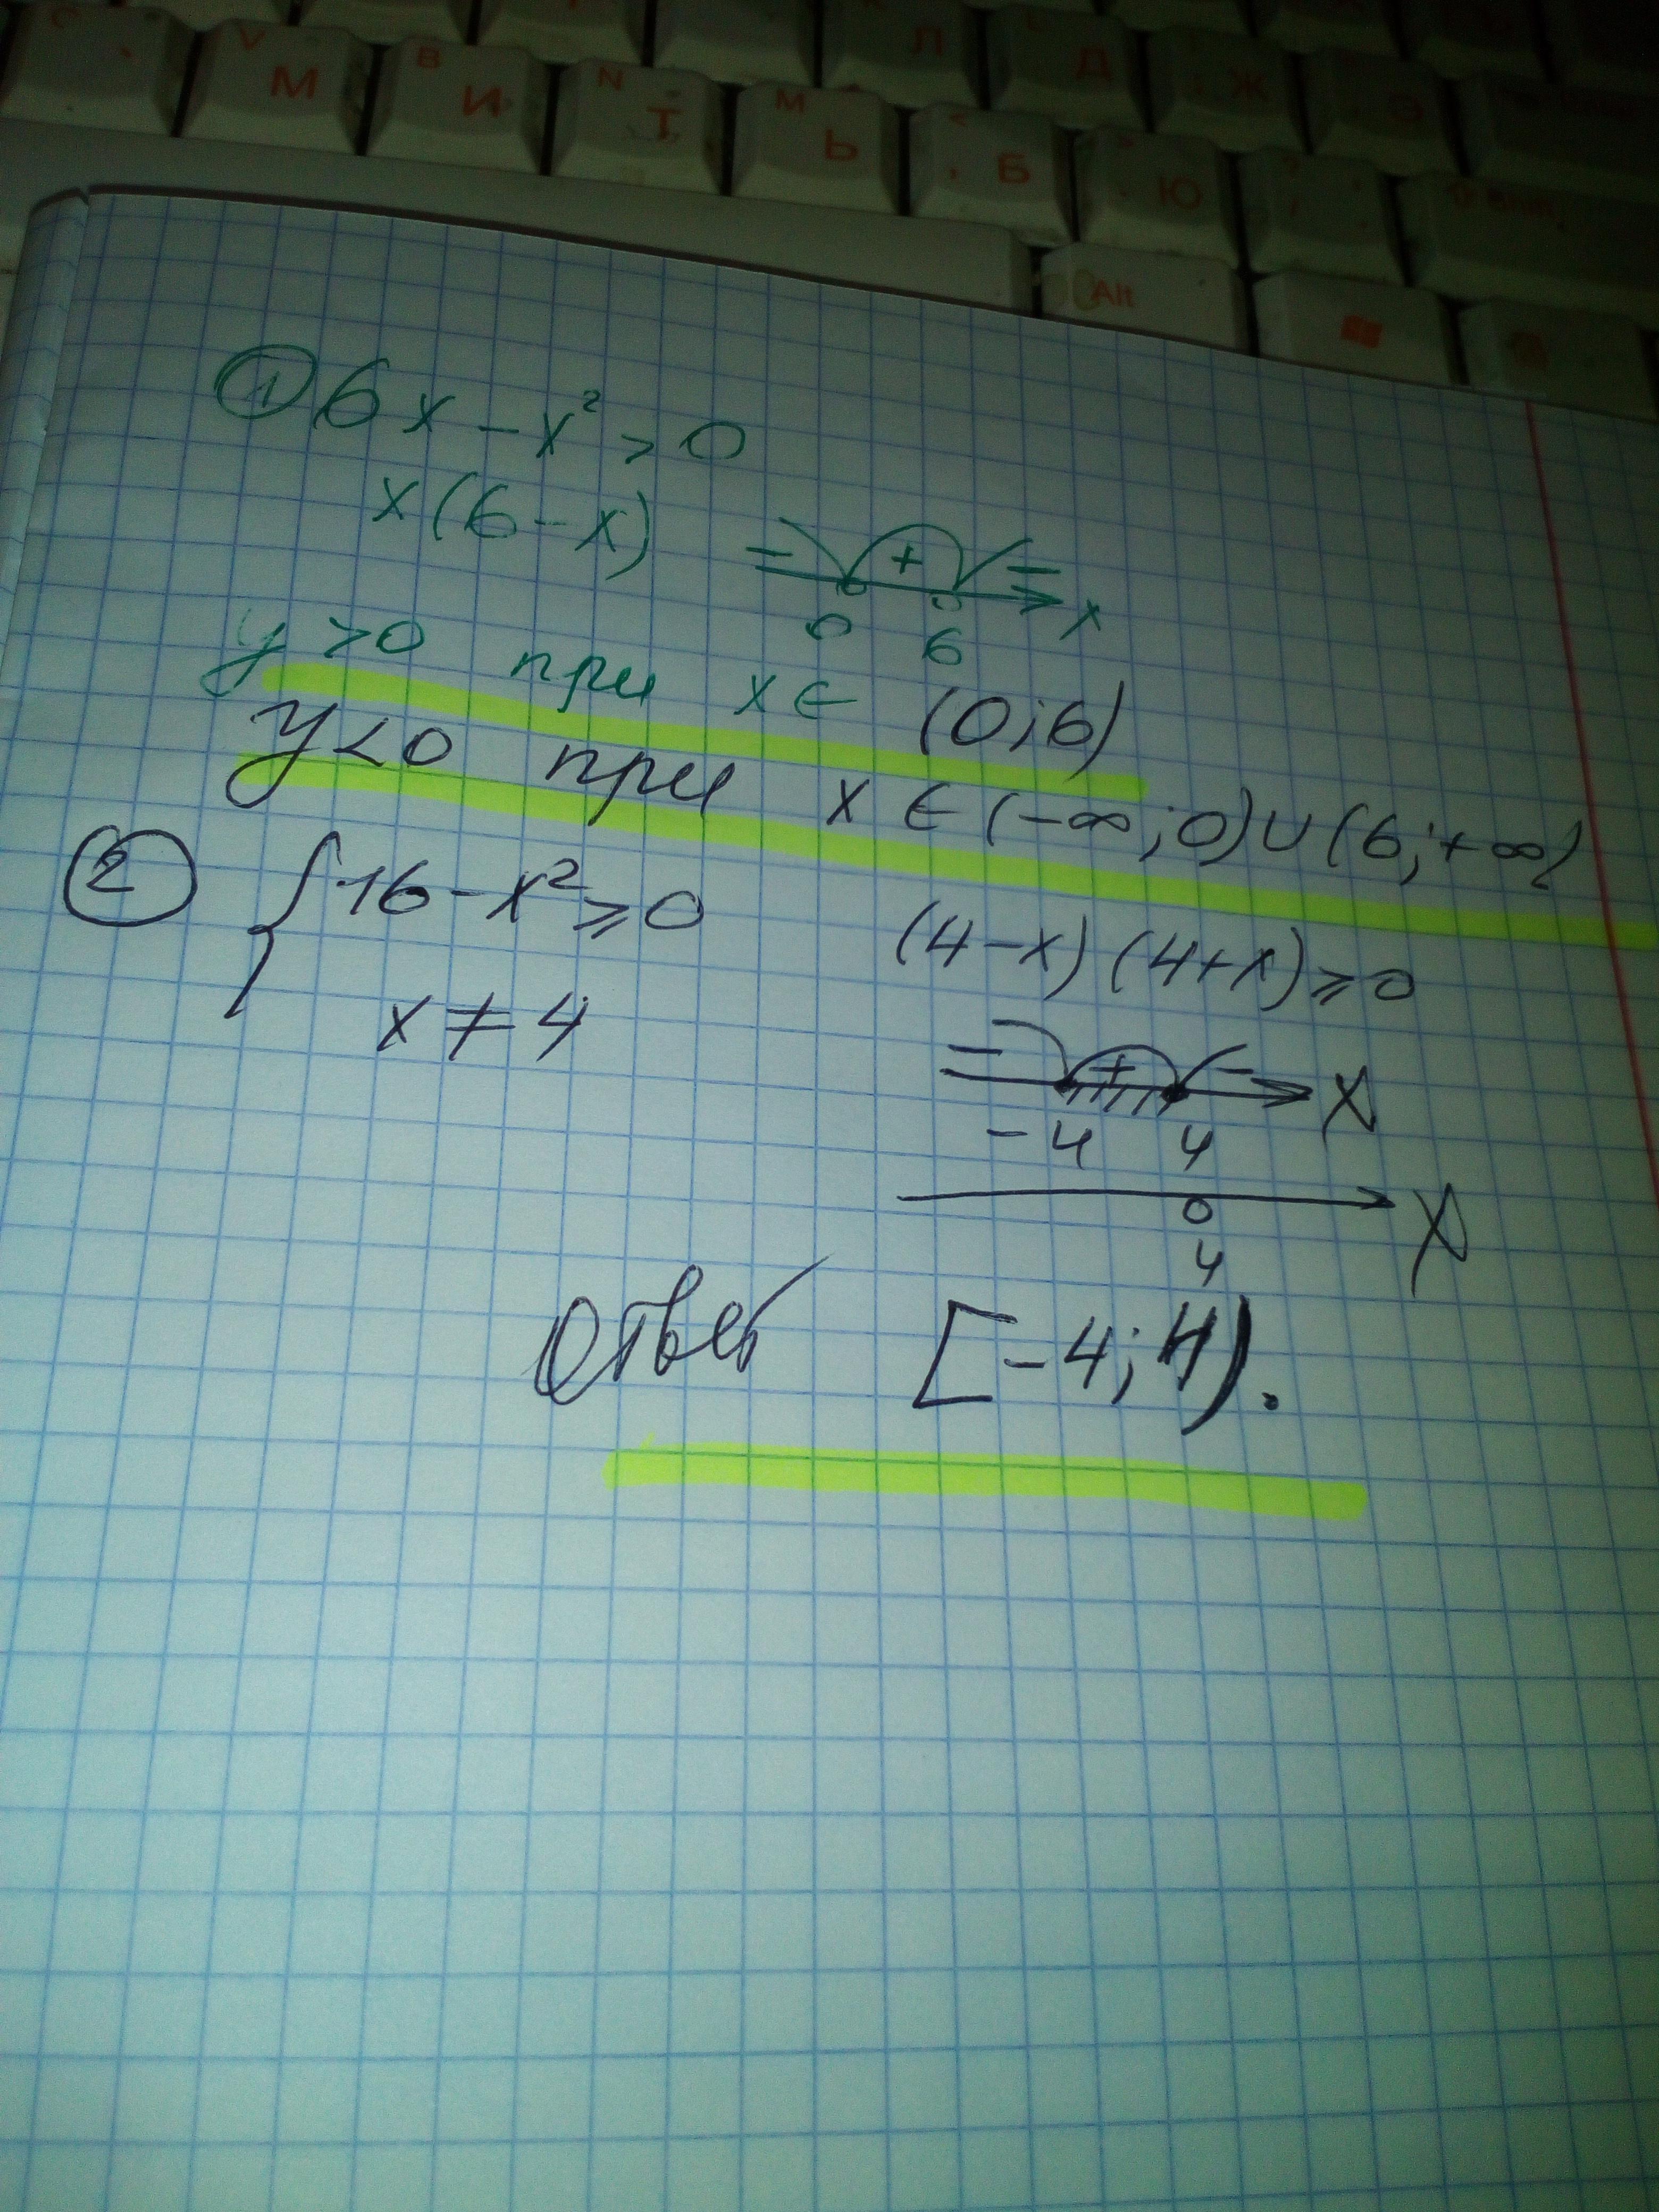 V М
B И
N Т
M Ь
Б
Ю
Л
Д
Ж
Э
Alt
① 6x - x² > 0
x(6 - x)
- + - x
0 6
y > 0 при x ∈ (0;6)
y < 0 при x ∈ (-∞;0)∪(6;+∞)
② { 16 - x² ≥ 0
x ≠ 4
(4-x)(4+x) ≥ 0
- + - X
-4 4
X
4
Ответ [-4;4).